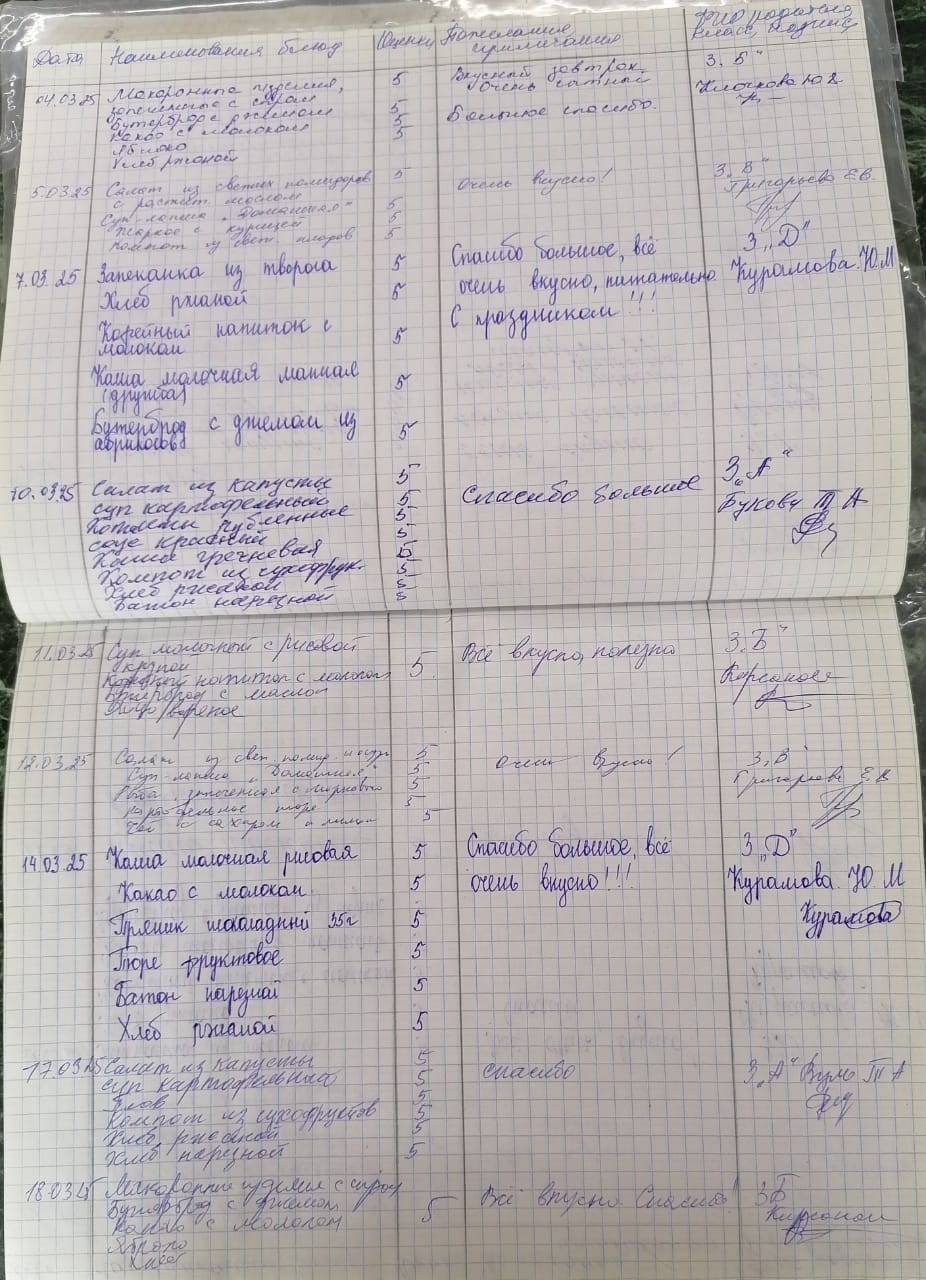 Дата Наименования блюд Оценки Пожелания примечания ФИО родителя класс, подпись
04.03.25 Макаронные изделия, 5 Вкусный завтрак 3 „Б“
запеченные с сыром очень сытный
Бутерброд с джемом 5 Большое спасибо.
Какао с молоком 5
Яблоко
Хлеб ржаной
5.03.25 Салат из свежих помидоров 5 Очень вкусно! 3 „В“
с растит. маслом Григорьева Е.В.
Суп-лапша „Домашняя“ 5
Жаркое с курицей 5
Компот из свеж. плодов 5
7.03.25 Запеканка из творога 5 Спасибо большое, всё 3 „D“
Хлеб ржаной 5 очень вкусно, питательно Курамова. Ю.М
Кофейный напиток с 5 С праздником!!!
молоком
Каша молочная манная 5
(дружба)
Бутерброд с джемом из 5
абрикосов
10.03.25 Салат из капусты 5 Спасибо большое 3 „А“
суп картофельный 5
Котлеты рубленные 5
соус красный 5
Каша гречневая 5
Компот из сухофрук. 5
Хлеб ржаной 5
Батон нарезной 5
11.03.25 Суп молочный с рисовой 5 Всё вкусно, полезно 3 „Б“
крупой
Кофейный напиток с молоком
Бутерброд с маслом
Яйцо вареное
12.03.25 Салат из свеж. помид. и огур 5 Очень вкусно! 3 „В“
Суп-лапша „Домашняя“ 5 Григорьева Е.В
Рыба, запеченная с морковью 5
картофельное пюре 5
Чай с сахаром и лимон 5
14.03.25 Каша молочная рисовая 5 Спасибо большое, всё 3 „D“
Какао с молоком 5 очень вкусно!!! Курамова. Ю М
Пряник шоколадный 35г 5 Курамова
Пюре фруктовое 5
Батон нарезной 5
Хлеб ржаной 5
17.03.25 Салат из капусты 5 спасибо 3 „А“
суп картофельный 5
Плов 5
Компот из сухофруктов 5
Хлеб ржаной 5
Хлеб нарезной 5
18.03.25 Макаронные изделия с сыром 5 Всё вкусно. Спасибо! 3Б
Бутерброд с джемом
Какао с молоком
Яблоко
Хлеб